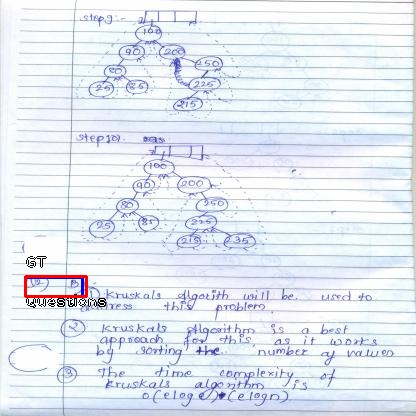 step 9:-
100
90 200
80 250
25 85 225
215
step 10:-
100
90 200
80 250
25 85 225
215 235
GT
Q2 B
Questions
① Kruskals Algorith will be used to
address this problem
② Kruskals Algorithm is a best
approach for this, as it works
by sorting the number of values
③ The time complexity of
kruskals algorithm is
O(eloge) (elogn)